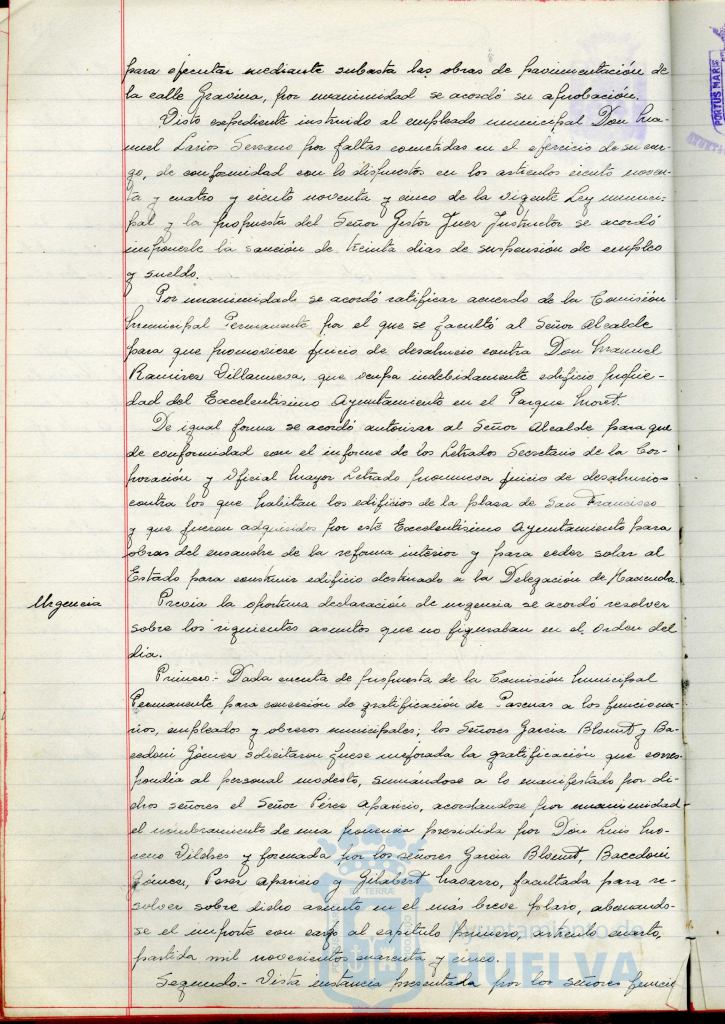 para ejecutar mediante subasta las obras de pavimentación de
la calle Gravina, por unanimidad se acordó su aprobación.
Visto expediente instruido al empleado municipal Don Ma-
nuel Larios Serrano por faltas cometidas en el ejercicio de su car-
go, de conformidad con lo dispuesto en los artículos ciento noven-
ta y cuatro y ciento noventa y cinco de la vigente Ley munici-
pal y la propuesta del Señor Gestor Juez Instructor se acordó
imponerle la sanción de treinta dias de suspensión de empleo
y sueldo.
Por unanimidad se acordó ratificar acuerdo de la Comisión
Municipal Permanente por el que se facultó al Señor Alcalde
para que promoviese juicio de desahucio contra Don Manuel
Ramirez Villanueva, que ocupa indebidamente edificio propie-
dad del Excelentisimo Ayuntamiento en el Parque Moret.
De igual forma se acordó autorizar al Señor Alcalde para que
de conformidad con el informe de los Letrados Secretario de la Cor-
poración y Oficial Mayor Letrado promueva juicio de desahucio
contra los que habitan los edificios de la plaza de San Francisco
y que fueron adquiridos por este Excelentisimo Ayuntamiento para
obras del ensanche de la reforma interior y para ceder solar al
Estado para construir edificio destinado a la Delegación de Hacienda.
Urgencia
Previa la oportuna declaración de urgencia se acordó resolver
sobre los siguientes asuntos que no figuraban en el Orden del
dia.
Primero.- Dada cuenta de propuesta de la Comisión Municipal
Permanente para concesión de gratificación de Pascuas a los funciona-
rios, empleados y obreros municipales; los Señores Garcia Blount y Ba-
cedoni Gómez solicitaron fuese mejorada la gratificación que corres-
pondia al personal modesto, sumándose a lo manifestado por di-
chos señores el Señor Perez Aparicio, acordandose por unanimidad
el nombramiento de una ponencia presidida por Don Luis Mo-
reno Vilches y formada por los señores Garcia Blount, Bacedoni
Gómez, Perez Aparicio y Gilabert Navarro, facultada para re-
solver sobre dicho asunto en el más breve plazo, abonando-
se el importe con cargo al capitulo primero, articulo cuarto,
partida mil novecientos cuarenta y cinco.
Segundo.- Vista instancia presentada por los señores funcio
PORTUS MARIS
TERRA
Ayuntamiento de
HUELVA